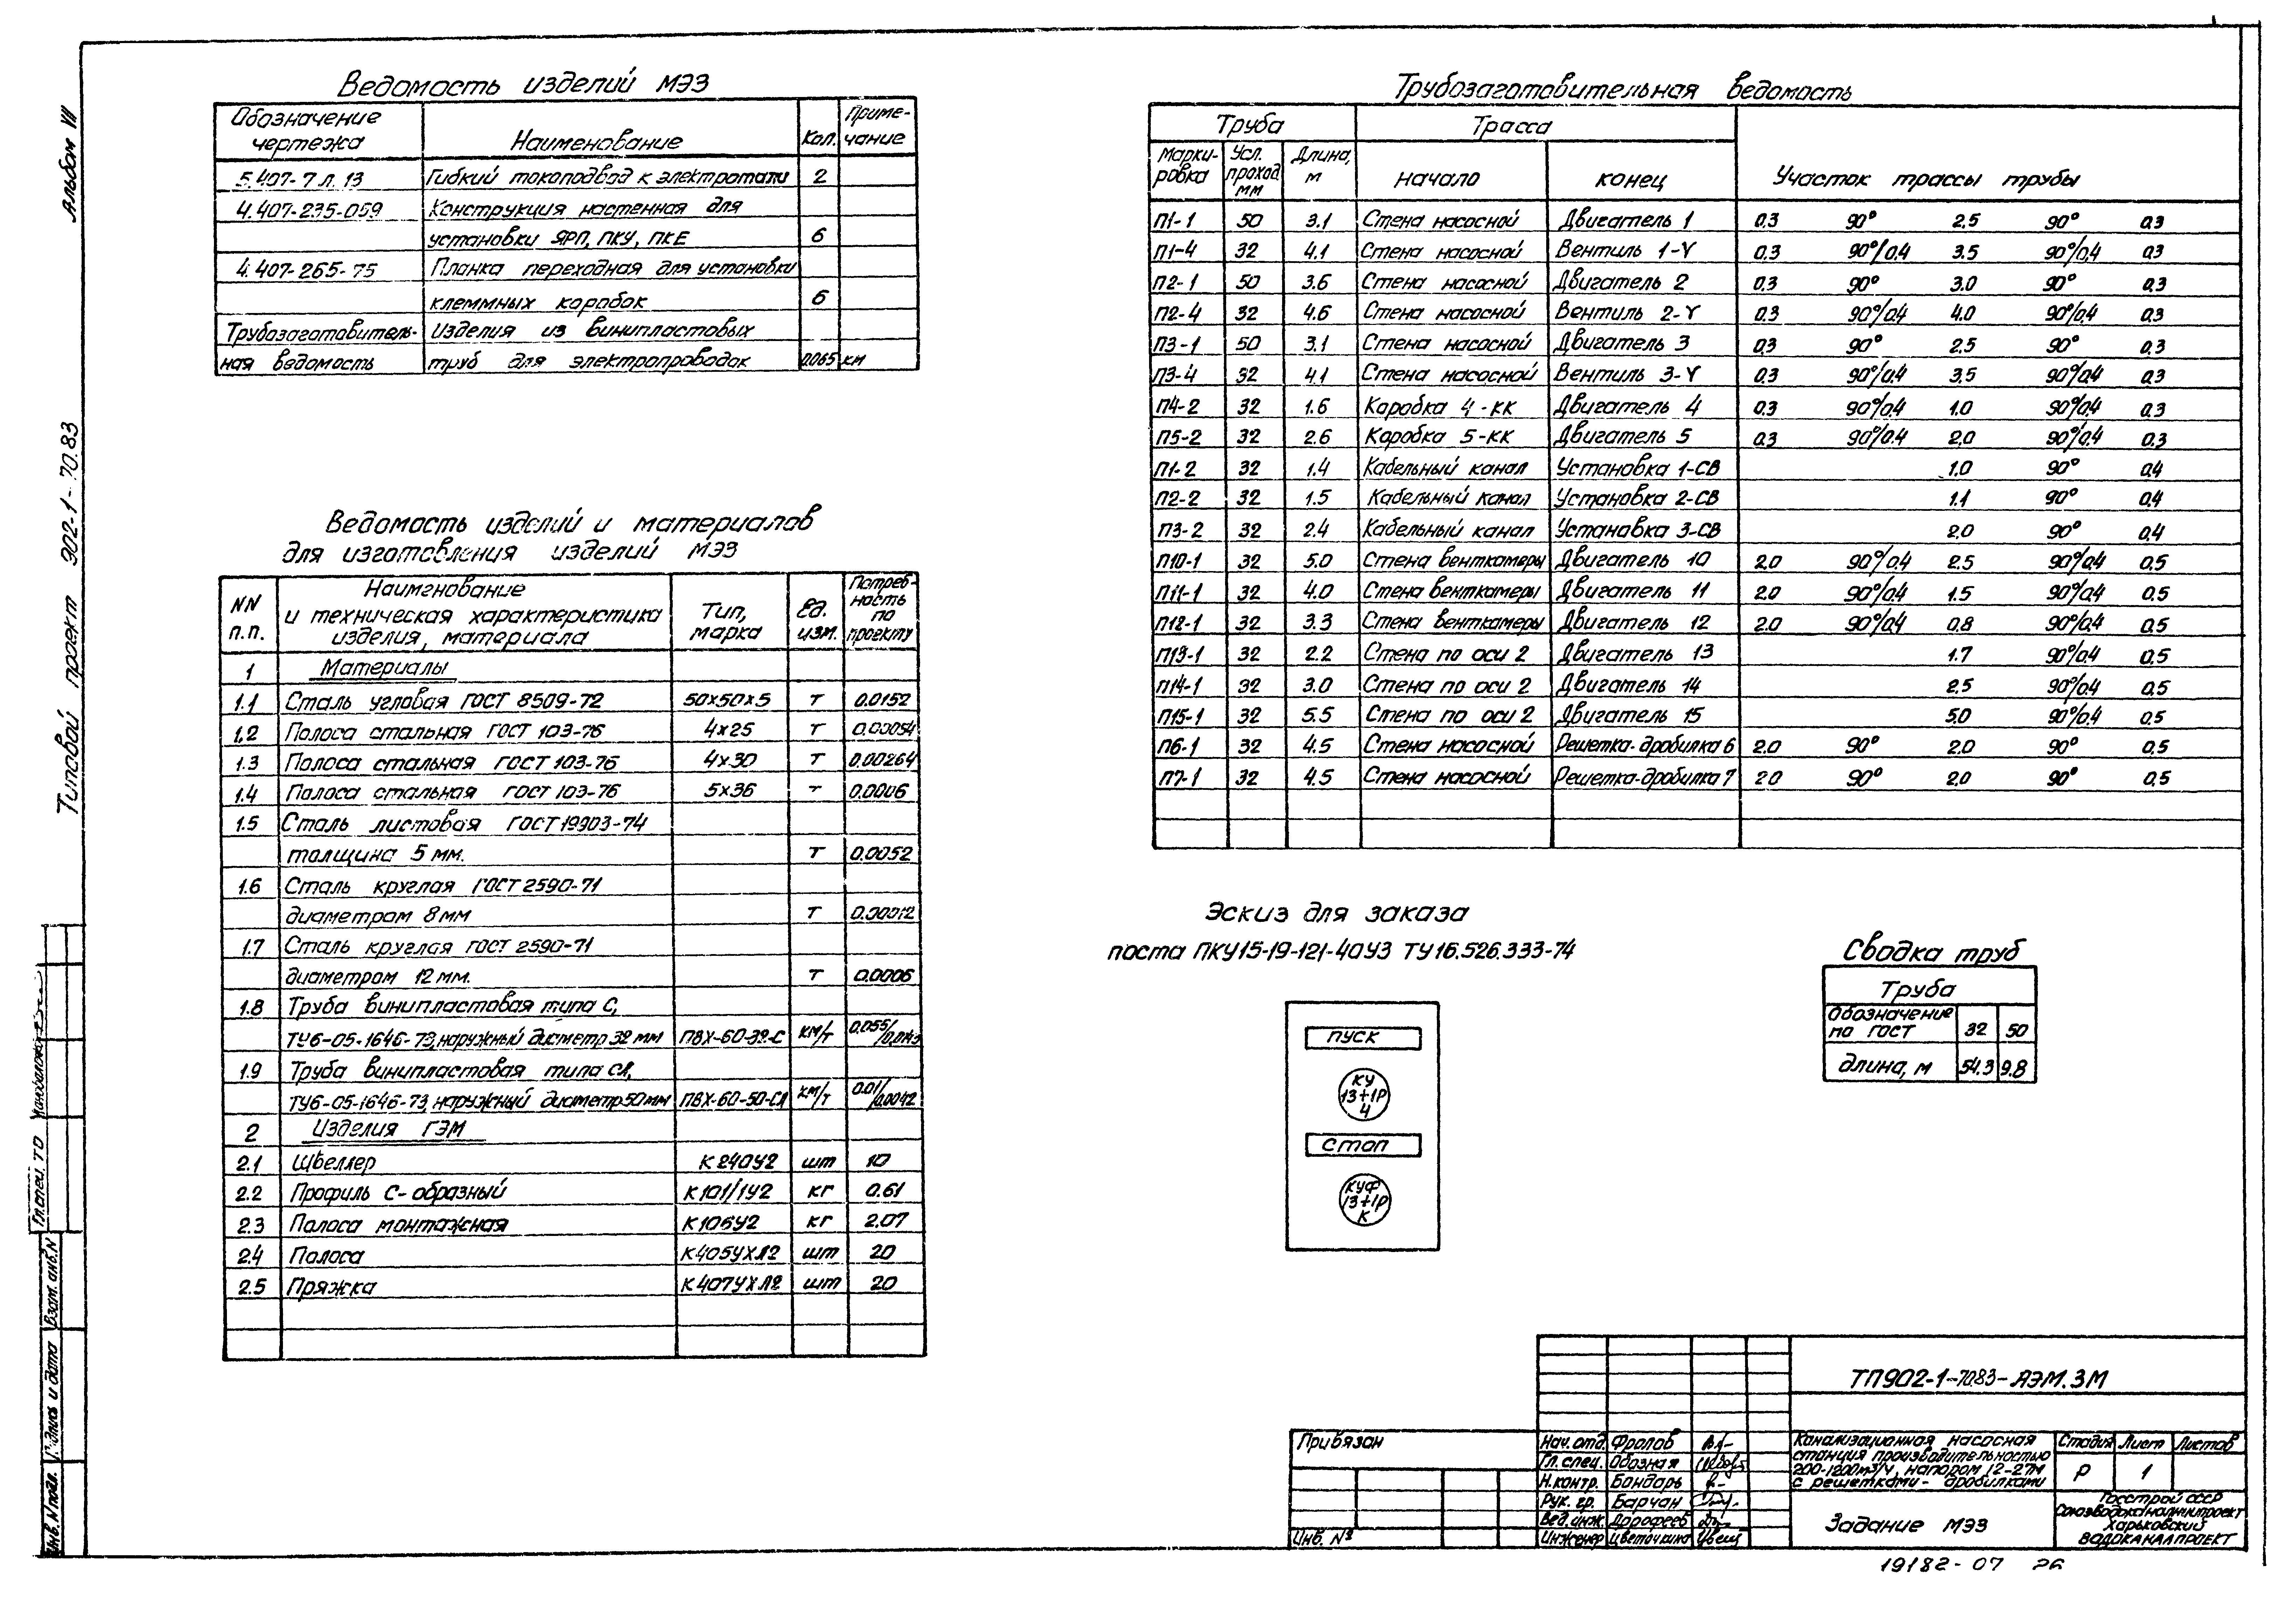 Альбом VII
Типовой проект 902-1-70.83
Ведомость изделий МЭЗ
Обозначение чертежа | Наименование | Кол. | Приме-чание
5.407-7 л. 13 | Гибкий токоподвод к электротали | 2
4.407-235-059 | Конструкция настенная для
установки ЯРП, ПКУ, ПКЕ | 6
4.407-265-75 | Планка переходная для установки
клеммных коробок | 6
Трубозаготовитель- | Изделия из винипластовых
ная ведомость | труб для электропроводок | 0.065 | км
Ведомость изделий и материалов
для изготовления изделий МЭЗ
NN п.п. | Наименование и техническая характеристика изделия, материала | Тип, марка | Ед. изм. | Потреб-ность по проекту
1 | Материалы
1.1 | Сталь угловая ГОСТ 8509-72 | 50х50х5 | т | 0.0152
1.2 | Полоса стальная ГОСТ 103-76 | 4х25 | т | 0.00054
1.3 | Полоса стальная ГОСТ 103-76 | 4х30 | т | 0.00264
1.4 | Полоса стальная ГОСТ 103-76 | 5х36 | т | 0.0006
1.5 | Сталь листовая ГОСТ 19903-74
толщина 5 мм. | т | 0.0052
1.6 | Сталь круглая ГОСТ 2590-71
диаметром 8 мм | т | 0.00012
1.7 | Сталь круглая ГОСТ 2590-71
диаметром 12 мм. | т | 0.0006
1.8 | Труба винипластовая типа С,
ТУ6-05-1646-73, наружный диаметр 32 мм | ПВХ-60-32-С | км/т | 0.055/
1.9 | Труба винипластовая типа СЛ,
ТУ6-05-1646-73, наружный диаметр 50 мм | ПВХ-60-50-СЛ | км/т | 0.01/0.0042
2 | Изделия ГЭМ
2.1 | Швеллер | К240У2 | шт | 10
2.2 | Профиль С-образный | К101/1У2 | кг | 0.61
2.3 | Полоса монтажная | К106У2 | кг | 2.07
2.4 | Полоса | К405УХЛ2 | шт | 20
2.5 | Пряжка | К407УХЛ2 | шт | 20
Трубозаготовительная ведомость
Труба | Трасса
Марки-ровка | Усл. проход мм | Длина, м | начало | конец | Участок трассы трубы
П1-1 | 50 | 3.1 | Стена насосной | Двигатель 1 | 0.3 90° 2.5 90° 0.3
П1-4 | 32 | 4.1 | Стена насосной | Вентиль 1-Y | 0.3 90°/0.4 3.5 90°/0.4 0.3
П2-1 | 50 | 3.6 | Стена насосной | Двигатель 2 | 0.3 90° 3.0 90° 0.3
П2-4 | 32 | 4.6 | Стена насосной | Вентиль 2-Y | 0.3 90°/0.4 4.0 90°/0.4 0.3
П3-1 | 50 | 3.1 | Стена насосной | Двигатель 3 | 0.3 90° 2.5 90° 0.3
П3-4 | 32 | 4.1 | Стена насосной | Вентиль 3-Y | 0.3 90°/0.4 3.5 90°/0.4 0.3
П4-2 | 32 | 1.6 | Коробка 4-КК | Двигатель 4 | 0.3 90°/0.4 1.0 90°/0.4 0.3
П5-2 | 32 | 2.6 | Коробка 5-КК | Двигатель 5 | 0.3 90°/0.4 2.0 90°/0.4 0.3
П1-2 | 32 | 1.4 | Кабельный канал | Установка 1-СВ | 1.0 90° 0.4
П2-2 | 32 | 1.5 | Кабельный канал | Установка 2-СВ | 1.1 90° 0.4
П3-2 | 32 | 2.4 | Кабельный канал | Установка 3-СВ | 2.0 90° 0.4
П10-1 | 32 | 5.0 | Стена венткамеры | Двигатель 10 | 2.0 90°/0.4 2.5 90°/0.4 0.5
П11-1 | 32 | 4.0 | Стена венткамеры | Двигатель 11 | 2.0 90°/0.4 1.5 90°/0.4 0.5
П12-1 | 32 | 3.3 | Стена венткамеры | Двигатель 12 | 2.0 90°/0.4 0.8 90°/0.4 0.5
П13-1 | 32 | 2.2 | Стена по оси 2 | Двигатель 13 | 1.7 90°/0.4 0.5
П14-1 | 32 | 3.0 | Стена по оси 2 | Двигатель 14 | 2.5 90°/0.4 0.5
П15-1 | 32 | 5.5 | Стена по оси 2 | Двигатель 15 | 5.0 90°/0.4 0.5
П6-1 | 32 | 4.5 | Стена насосной | Решетка-дробилка 6 | 2.0 90° 2.0 90° 0.5
П7-1 | 32 | 4.5 | Стена насосной | Решетка-дробилка 7 | 2.0 90° 2.0 90° 0.5
Эскиз для заказа
поста ПКУ15-19-121-40У3 ТУ16.526.333-74
ПУСК
КУ
13+1Р
Ч
Стоп
КУФ
13+1Р
К
Сводка труб
Труба
Обозначение по ГОСТ | 32 | 50
Длина, м | 54.3 | 9.8
Привязан
Инв. №
Нач. отд. Фролов
Гл. спец. Обозная
Н. контр. Бондарь
Рук. гр. Барчан
Вед. инж. Дорофеев
Инженер Цветочкина
ТП902-1-70.83-АЭМ.ЗМ
Канализационная насосная
станция производительностью
200-1200м³/ч, напором 12-27м
с решетками-дробилками
Стадия | Лист | Листов
Р | 1
Задание МЭЗ
Госстрой СССР
Союзводоканалниипроект
Харьковский
ВОДОКАНАЛПРОЕКТ
19182-07 26
Гл. спец. ТО
Взам. инв. N
Подпись и дата
Инв. N подл.